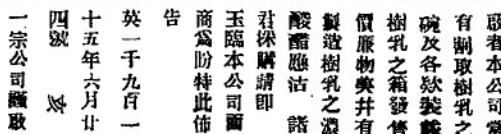 啟者本公司常
有割取樹乳之
碗及各欵裝載
樹乳之箱發售
價廉物美并有
製造樹乳之濃
酸醋應沽 諸
君採購請即
玉臨本公司面
商爲盼特此佈
告
英一千九百一
十五年六月廿
四號
一宗公司謹啟